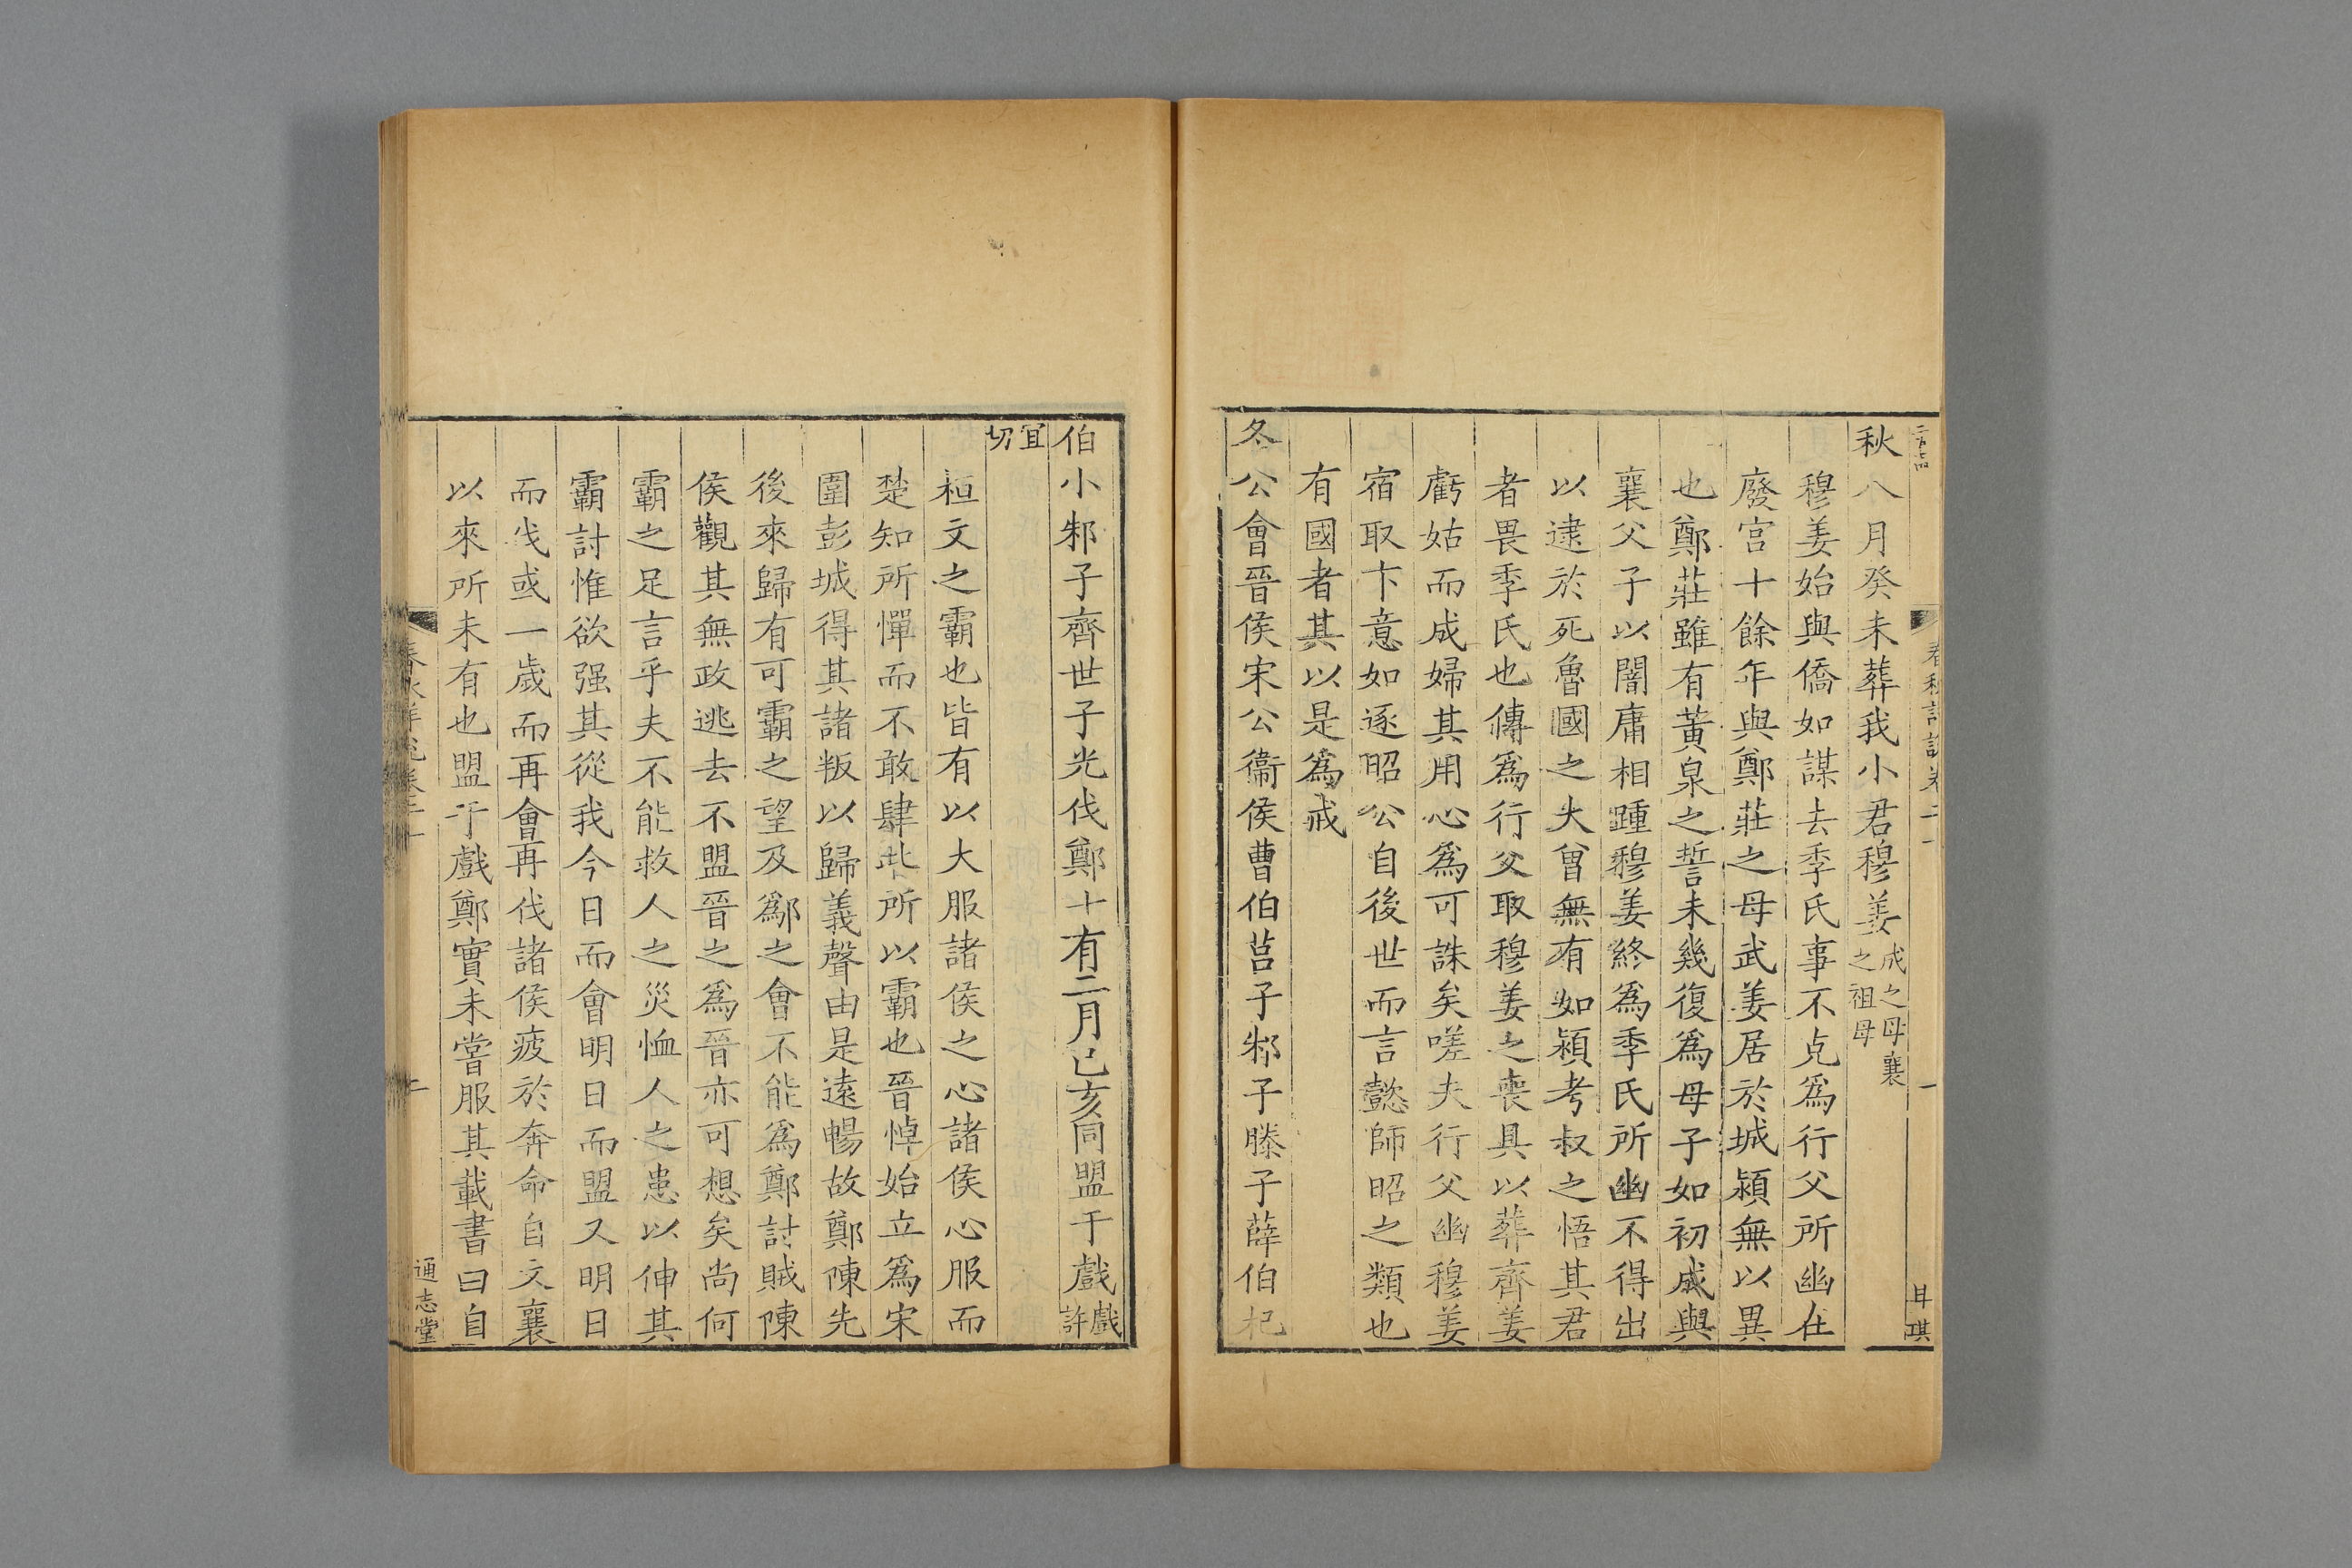 秋八月癸未葬我小君穆姜成之母襄之祖母
穆姜始與僑如謀去季氏事不克爲行父所幽在
廢宮十餘年與鄭莊之母武姜居於城潁無以異
也鄭莊雖有黃泉之誓未幾復爲母子如初成與
襄父子以闇庸相踵穆姜終爲季氏所幽不得出
以逮於死魯國之大曾無有如潁考叔之悟其君
者畏季氏也傳爲行父取穆姜之喪具以葬齊姜
虧姑而成婦其用心爲可誅矣嗟夫行父幽穆姜
宿取卞意如逐昭公自後世而言懿師昭之類也
有國者其以是爲戒
冬公會晉侯宋公衞侯曹伯莒子邾子滕子薛伯杞
伯小邾子齊世子光伐鄭十有二月己亥同盟于戲戲許
宜切
桓文之霸也皆有以大服諸侯之心諸侯心服而
楚知所憚而不敢肆此所以霸也晉悼始立爲宋
圍彭城得其諸叛以歸義聲由是遠暢故鄭陳先
後來歸有可霸之望及鄬之會不能爲鄭討賊陳
侯觀其無政逃去不盟晉之爲晉亦可想矣尚何
霸之足言乎夫不能救人之災恤人之患以伸其
霸討惟欲强其從我今日而會明日而盟又明日
而伐或一歲而再會再伐諸侯疲於奔命自文襄
以來所未有也盟于戲鄭實未嘗服其載書曰自
通志堂